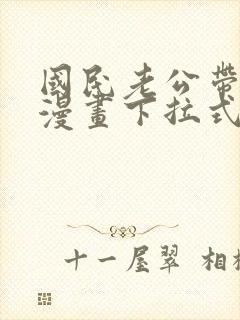 國民老公帶
漫畫下拉式
十一屋翠 相